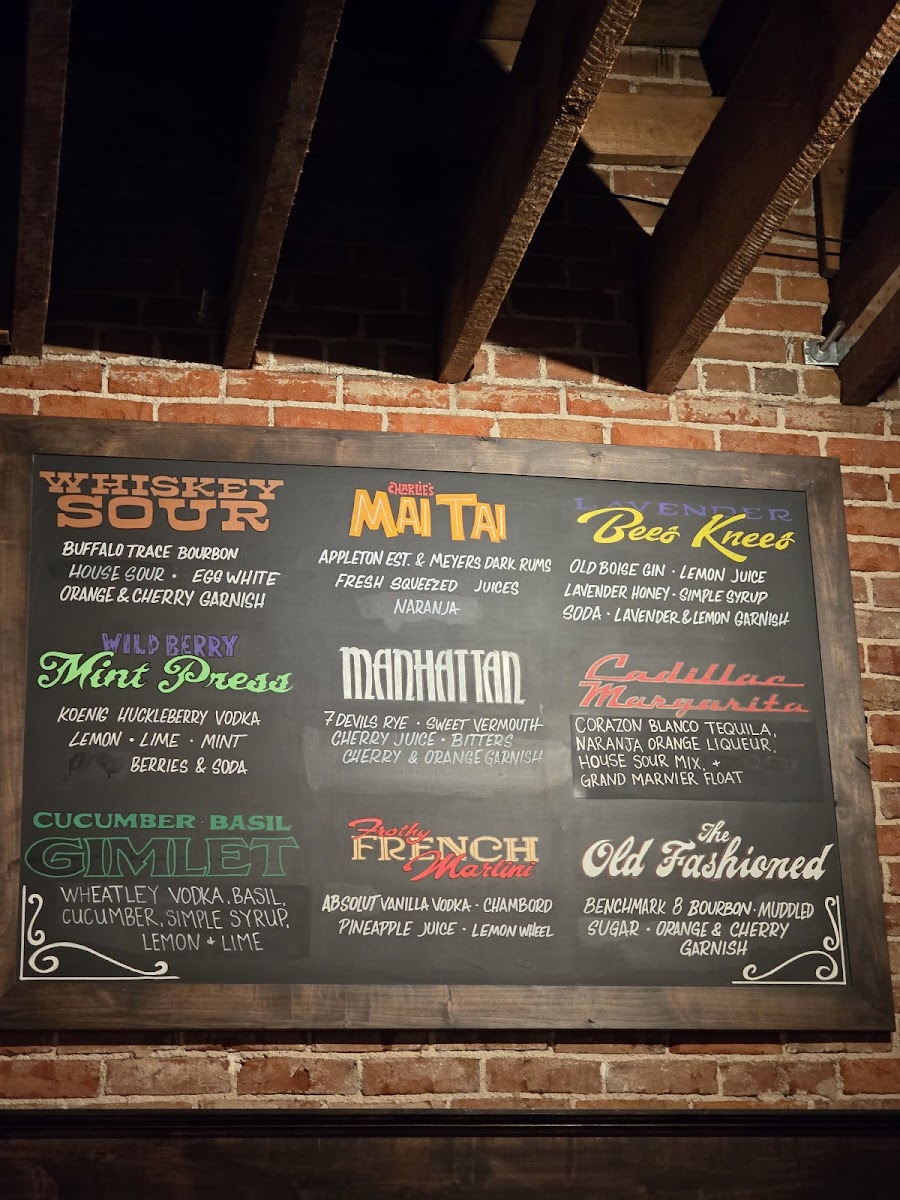 WHISKEY
SOUR
BUFFALO TRACE BOURBON
HOUSE SOUR · EGG WHITE
ORANGE & CHERRY GARNISH
CHARLIE'S
MAI TAI
APPLETON EST. & MEYERS DARK RUMS
FRESH SQUEEZED JUICES
NARANJA
LAVENDER
Bees Knees
OLD BOISE GIN · LEMON JUICE
LAVENDER HONEY · SIMPLE SYRUP
SODA · LAVENDER & LEMON GARNISH
WILD BERRY
Mint Press
KOENIG HUCKLEBERRY VODKA
LEMON · LIME · MINT
BERRIES & SODA
MANHATTAN
7 DEVILS RYE · SWEET VERMOUTH
CHERRY JUICE · BITTERS
CHERRY & ORANGE GARNISH
Cadillac
Margarita
CORAZON BLANCO TEQUILA,
NARANJA ORANGE LIQUEUR,
HOUSE SOUR MIX, +
GRAND MARNIER FLOAT
CUCUMBER BASIL
GIMLET
WHEATLEY VODKA, BASIL,
CUCUMBER, SIMPLE SYRUP,
LEMON + LIME
Frothy
FRENCH
Martini
ABSOLUT VANILLA VODKA · CHAMBORD
PINEAPPLE JUICE · LEMON WHEEL
The
Old Fashioned
BENCHMARK 8 BOURBON · MUDDLED
SUGAR · ORANGE & CHERRY
GARNISH